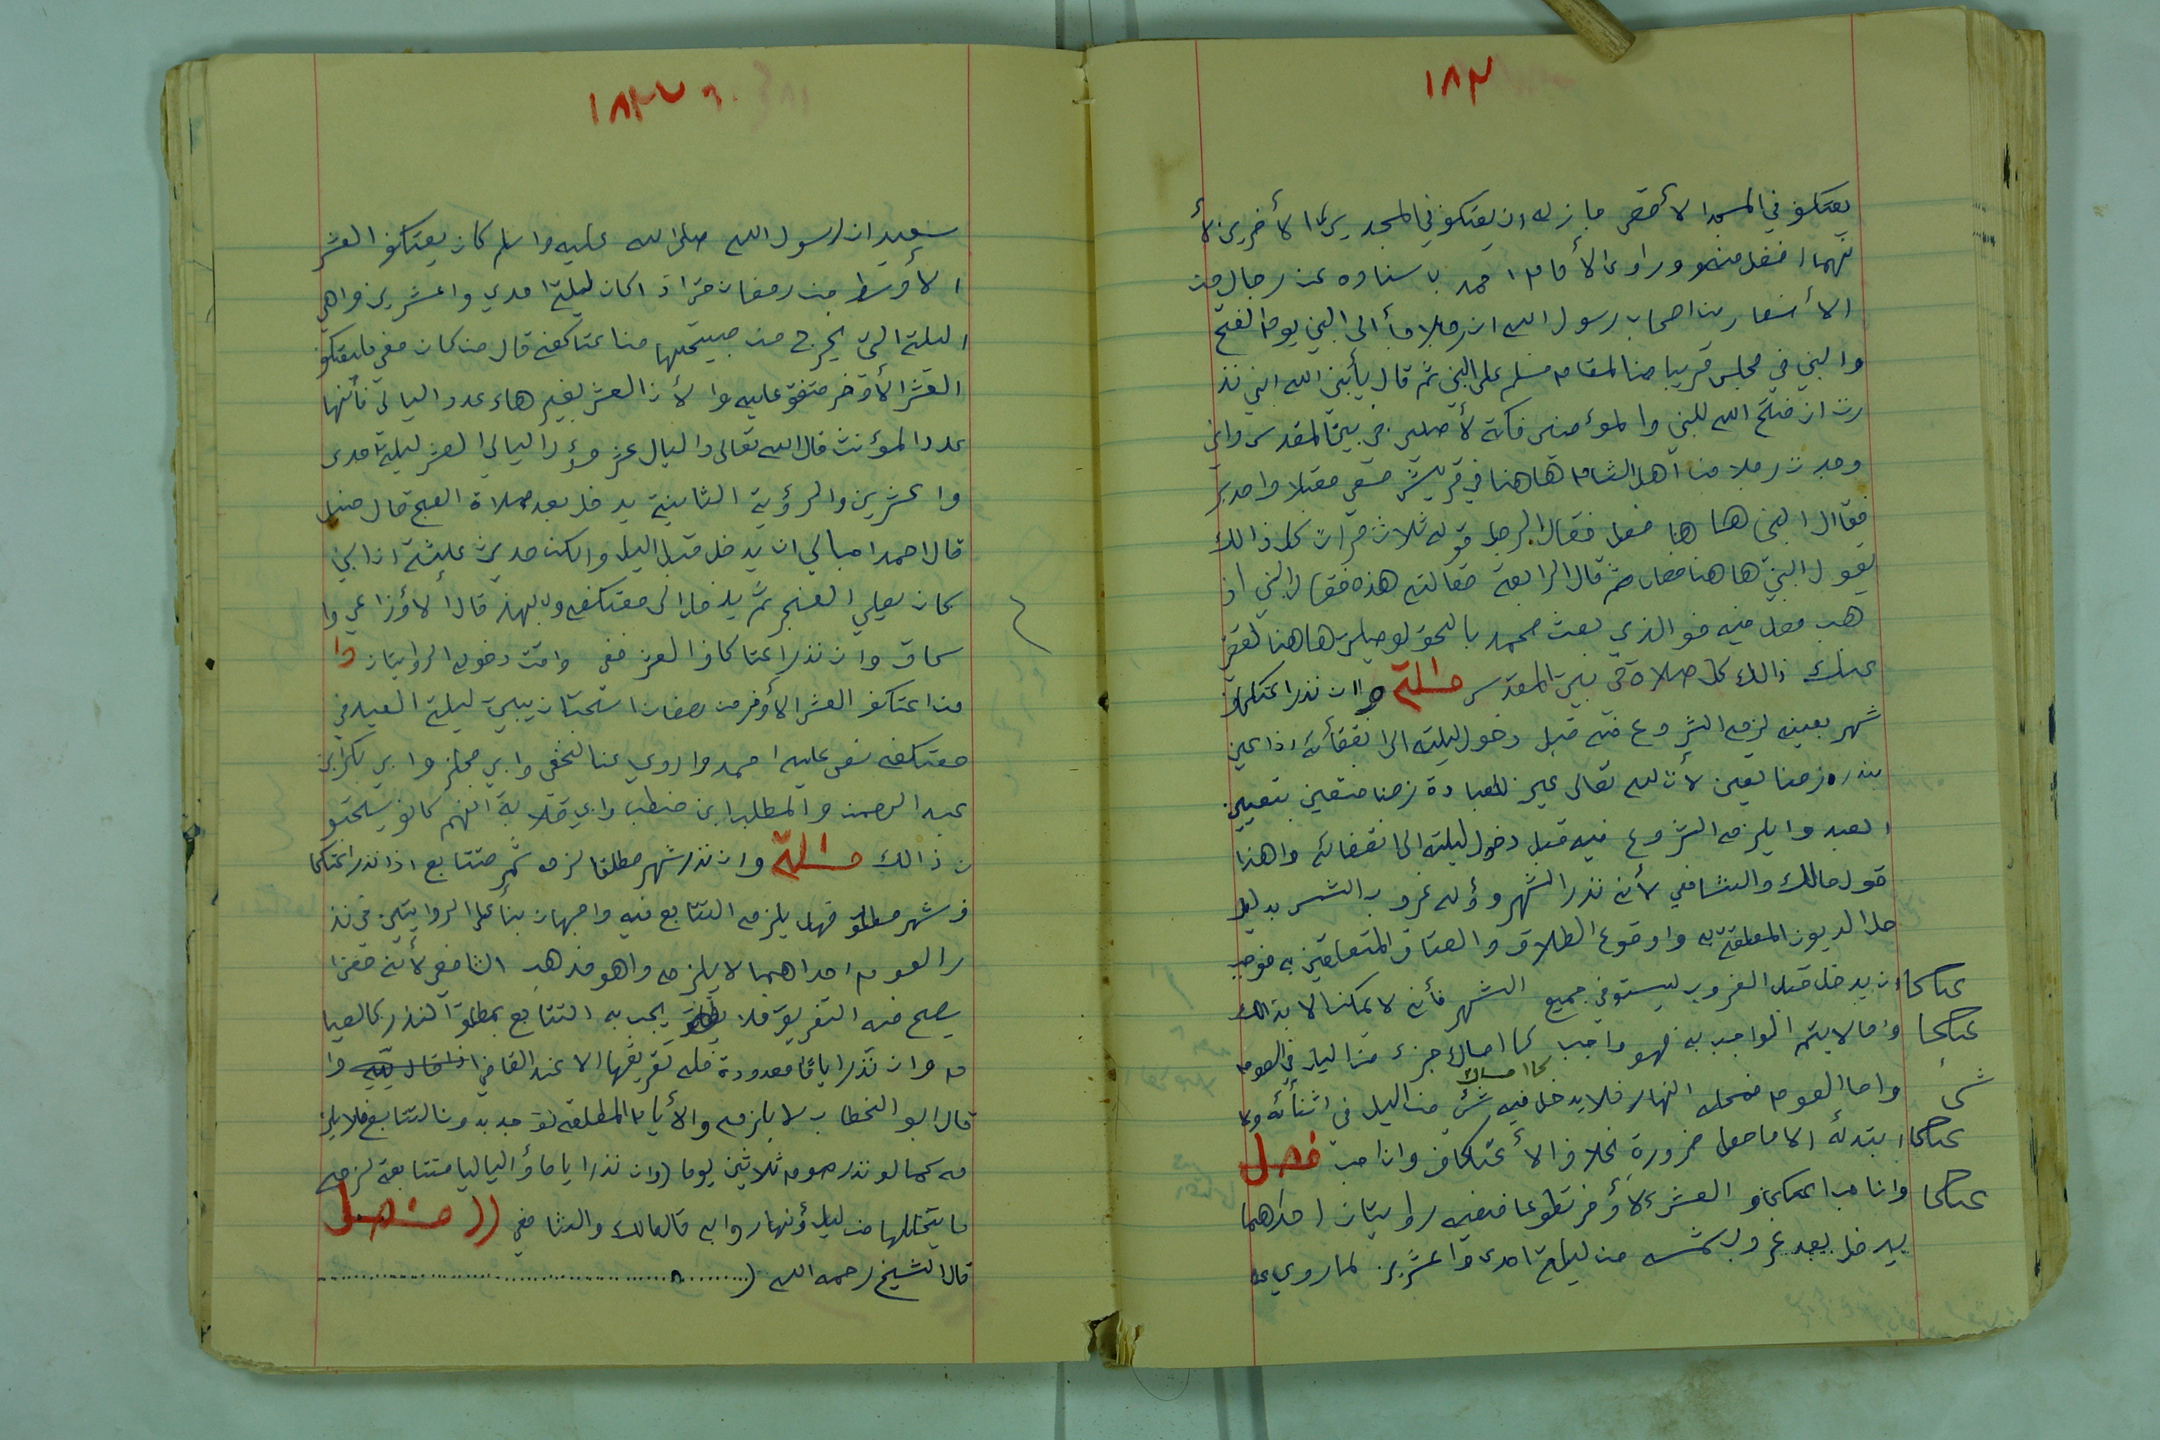 ١٨٣
يعتكف في المسجد الأقصى جاز له ان يعتكف في المسجدين الأخرين لأ
نهما افضل منه وراوى الأمام احمد باسناده عن رجال من
الأنصار من اصحاب رسول الله ان رجلا جأ الى النبي يوم الفتح
والنبي في مجلس قريبا من المقام فسلم على النبي ثم قال يأنبي الله اني نذ
رت ان فتح الله للنبي والمؤمنين مكة لأصلين في بيت المقدس واني
وجدت رجلا من أهل الشام هاهنا في قريش مقبلا وامدبر
فقال النبي هاهنا فصل فقال الرجل قوله ثلاث مرات كل ذالك
يقول النبي هاهنا فصل ثم قال الرابعة مقالته هذه فقال النبي اذ
هب فصل فيه فو الذي بعث محمد بالحق لو صليت هاهنا لقضى
عنك ذالك كل صلاة في بيت المقدس مسئلة وان نذر اعتكاف
شهر بعينه لزمه الشروع فيه قبل دخول ليلته الى انقضائه اذا عين
بنذره زمنا تعين لأن الله تعالى عين للعبادة زمنا فتعين بتعيين
العبد وايلزمه الشروع فيه قبل دخول ليلته الى انقضائه واهذا
قول مالك والشافعي لأنه نذر الشهر وؤله غروب الشمس بدليل
حل الديون المعلقة به واوقوع الطلاق والعتاق المتعلقين به فوجب
ان يدخل قبل الغروب ليستوفي جميع الشهر فأنه لا يمكن الا بذالك
وما لايتم الواجب به فهو واجب كا امساك جزء من اليل في الصوم
كا امساك
واما الصوم فمحله النهار فلايدخل فيه شئ من اليل في اثنائه ولا
ابتدئه الا ماحصل ضرورة بخلاف الأعتكاف وان احب فصل
وان احب اعتكاف العشر الأوخر تطوعا ففيه روايتان احداهما
يدخل بعد غروب شمسه من ليلة احدى واعشرين لما روي عن
عتاكا
عتاكا
شئ
عتاكا
عتاكا
١٨٣
سعيد ان رسول الله صلى الله عليه واسلم كان يعتكف العشر
الأوسط من رمضان حتى اذا كان ليلة احدي واعشرين واهي
اليلة التي يخرج من صبيحتها من اعتاكفه قال من كان معي فليعتكف
العشر الأوخر متفق عليه ولأن العشر بغير هاء عدد اليالي فأنها
عدد المؤنث قال الله تعالى وليال عشر وؤل اليالي العشر ليلة احدى
واعشرين والرؤية الثانية يدخل بعد صلاة الصبح قال حنبل
قال احمد احبالي ان يدخل قبل اليل والكن حديث عايشة ان النبي
كان يصلي الفجر ثم يدخل الى معتكفه وبهذ قال الأوزاعي وا
سحاق وان نذر اعتاكاف العشر ففي وقت دخوله الروايتان وا
من اعتكف العشر الأوخر من رمضان استحب ان يبيت ليلة العيد في
معتكفه نص عليه احمد واروي عن النخعي وابي مجلز وابي بكر ابن
عبد الرحمن والمطلب ابن حنطب وابي قلابة انهم كانو يستحبو
ن ذالك مسئلة وان نذر شهر مطلقا لزمه شهر متتابع اذا نذر اعتكا
ف شهر مطلق فهل يلزمه التتابع فيه واجهان بنأ على الروايتين في نذ
ر الصوم احداهما لا يلزمه واهو مذهب الشافعي لأنه معنا
يصح فيه التفريق فلا يجب به التتابع بمطلق النذر كالصيا
م وان نذر اياما معدودة فله تفريقها الا عند القاضي وا
قال ابو الخطاب لا يلزمه والأيام المطلقه توجد بدون التتابع فلايلز
مه كما لو نذر صوم ثلاثين يوما (وان نذر اياما ؤ اليالي متتابعة لزمه
ما يتخللها من ليل ؤنهار وابه قال مالك والشافعي (( فصل
قال الشيخ رحمه الله (